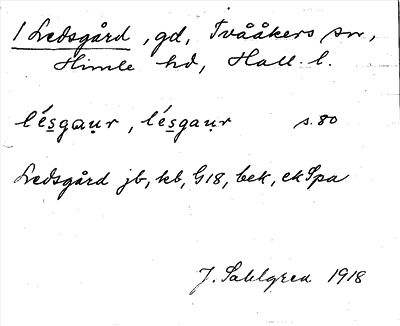 1 Ledsgård, gd, Tvååkers sn,
Himle hd, Hall. l.
lésgaụr, lésgaụr s. 80
Ledsgård jb, kb, G18, bek, ekSpa
J. Sahlgren 1918